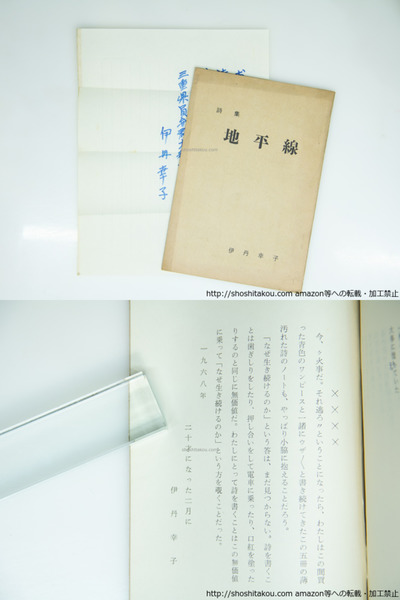 三重県員弁郡大
伊丹幸子
詩集
地平線
伊丹幸子
shoshitakou.com
http://shoshitakou.com amazon等への転載・加工禁止
××××
今、〝火事だ。それ逃ろ〟ということになったら、わたしはこの間買
った青色のワンピースと一諸にウザ〜〜と書き続けてきたこの五册の薄
汚れた詩のノートも、やっぱり小脇に抱えることだろう。
「なぜ生き続けるのか」という答は、まだ見つからない。詩を書くこ
とは歯ぎしりをしたり、押し合いをして電車に乗ったり、口紅を塗った
りするのと同じに無価値だ。わたしにとって詩を書くことはこの無価値
に乗って「なぜ生き続けるのか」という方を覗くことだった。
一九六八年
二十才になった二月に
伊丹幸子
shoshitakou.com
http://shoshitakou.com amazon等への転載・加工禁止